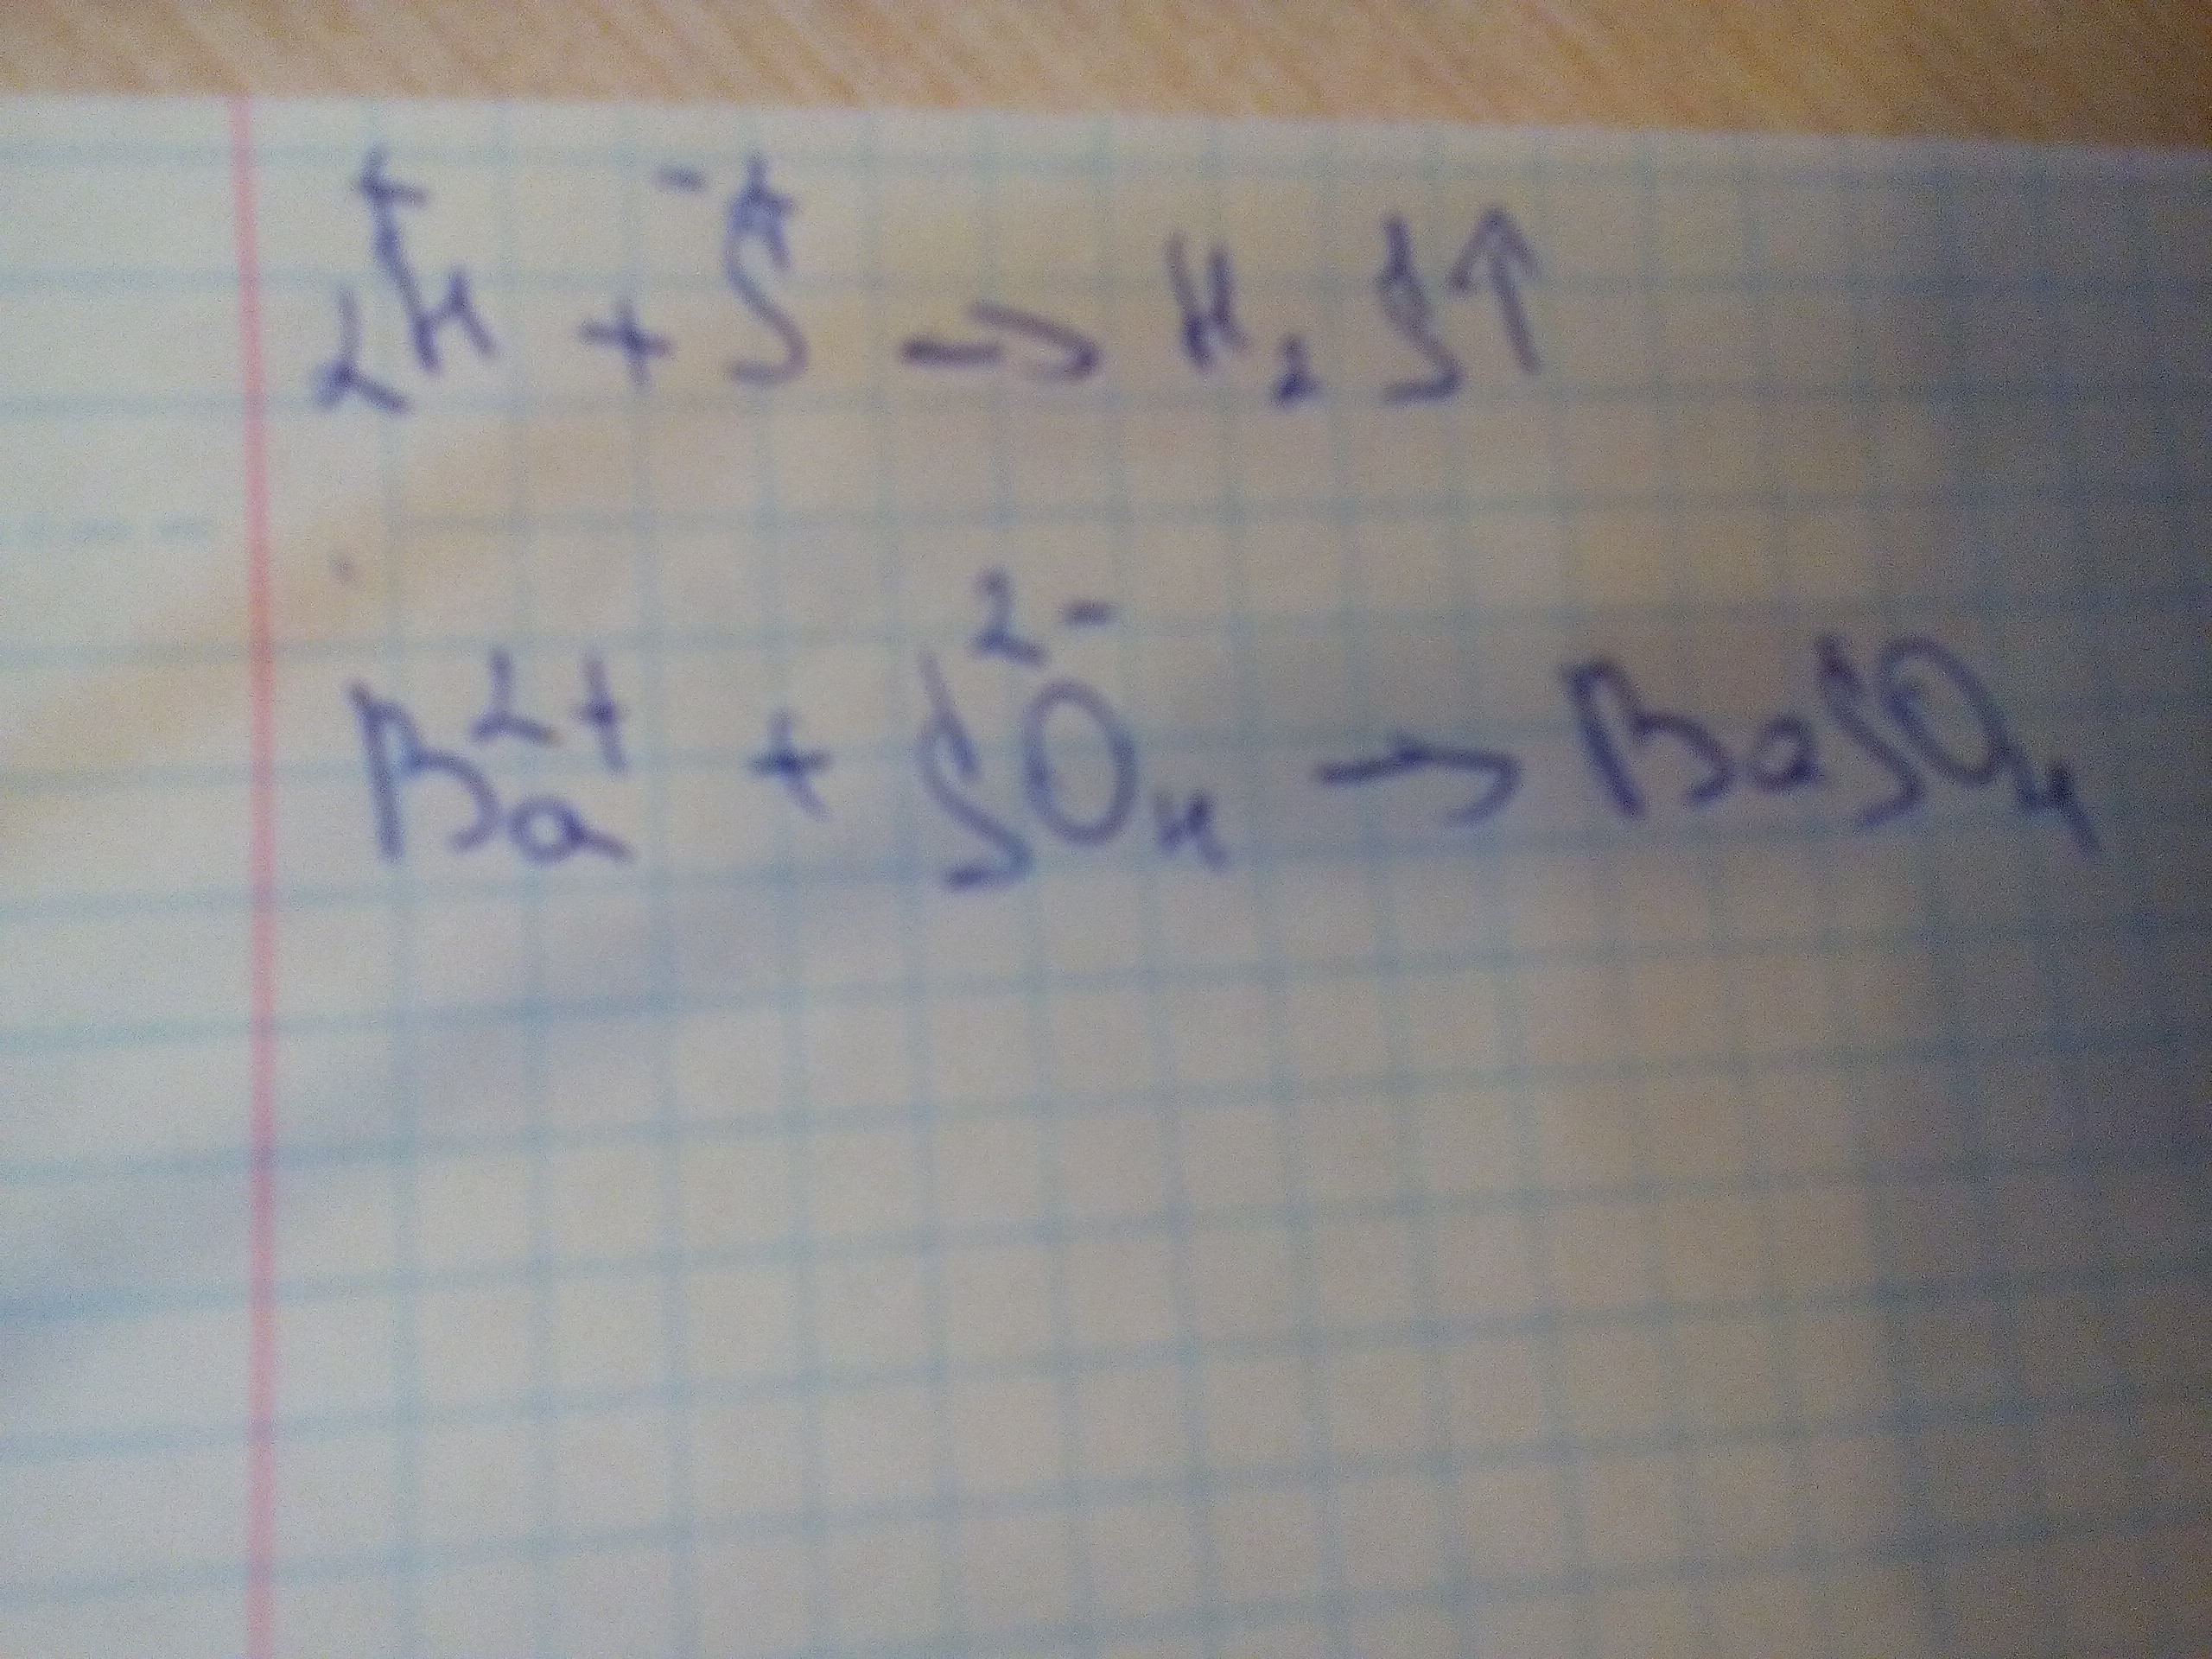 2H⁺ + S⁻² → H₂S↑
Ba²⁺ + SO₄²⁻ → BaSO₄